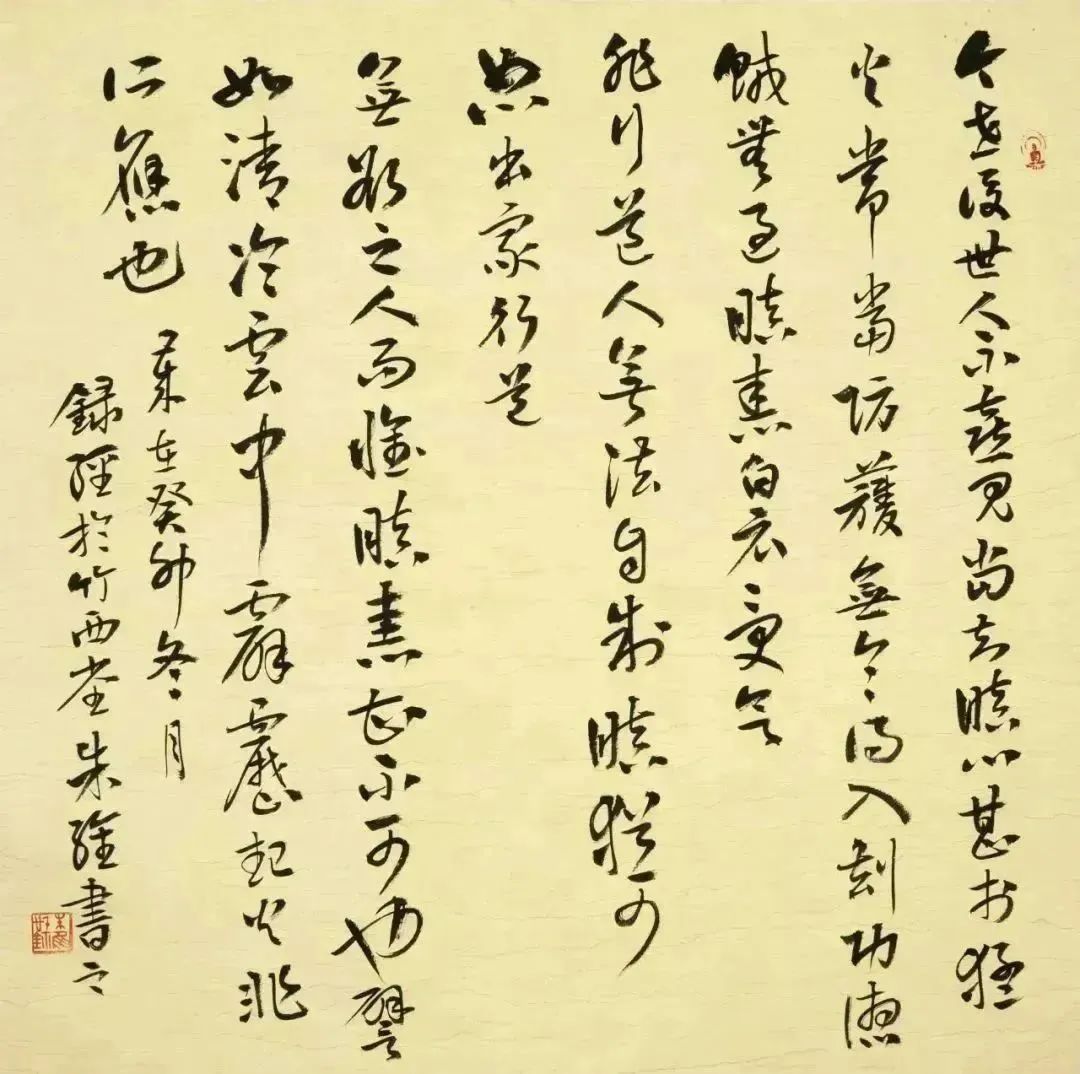 今世後世人不喜見當知瞋心甚於猛
火常當防護無令得入劫功德
賊無過瞋恚白衣受欲
非行道人無法自制瞋猶可
恕出家行道
無欲之人而懷瞋恚甚不可也譬
如清冷雲中霹靂起火非
所應也
歲在癸卯冬月
錄經於竹西堂朱書之